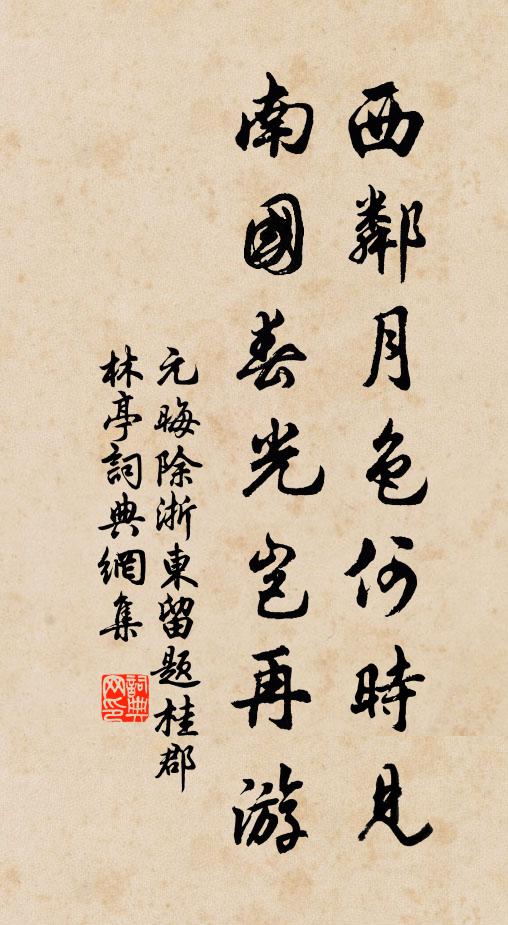 西鄰月色何時見
南國春光豈再游
元晦除浙東留題桂郡
林亭詞典網集
詞典网印